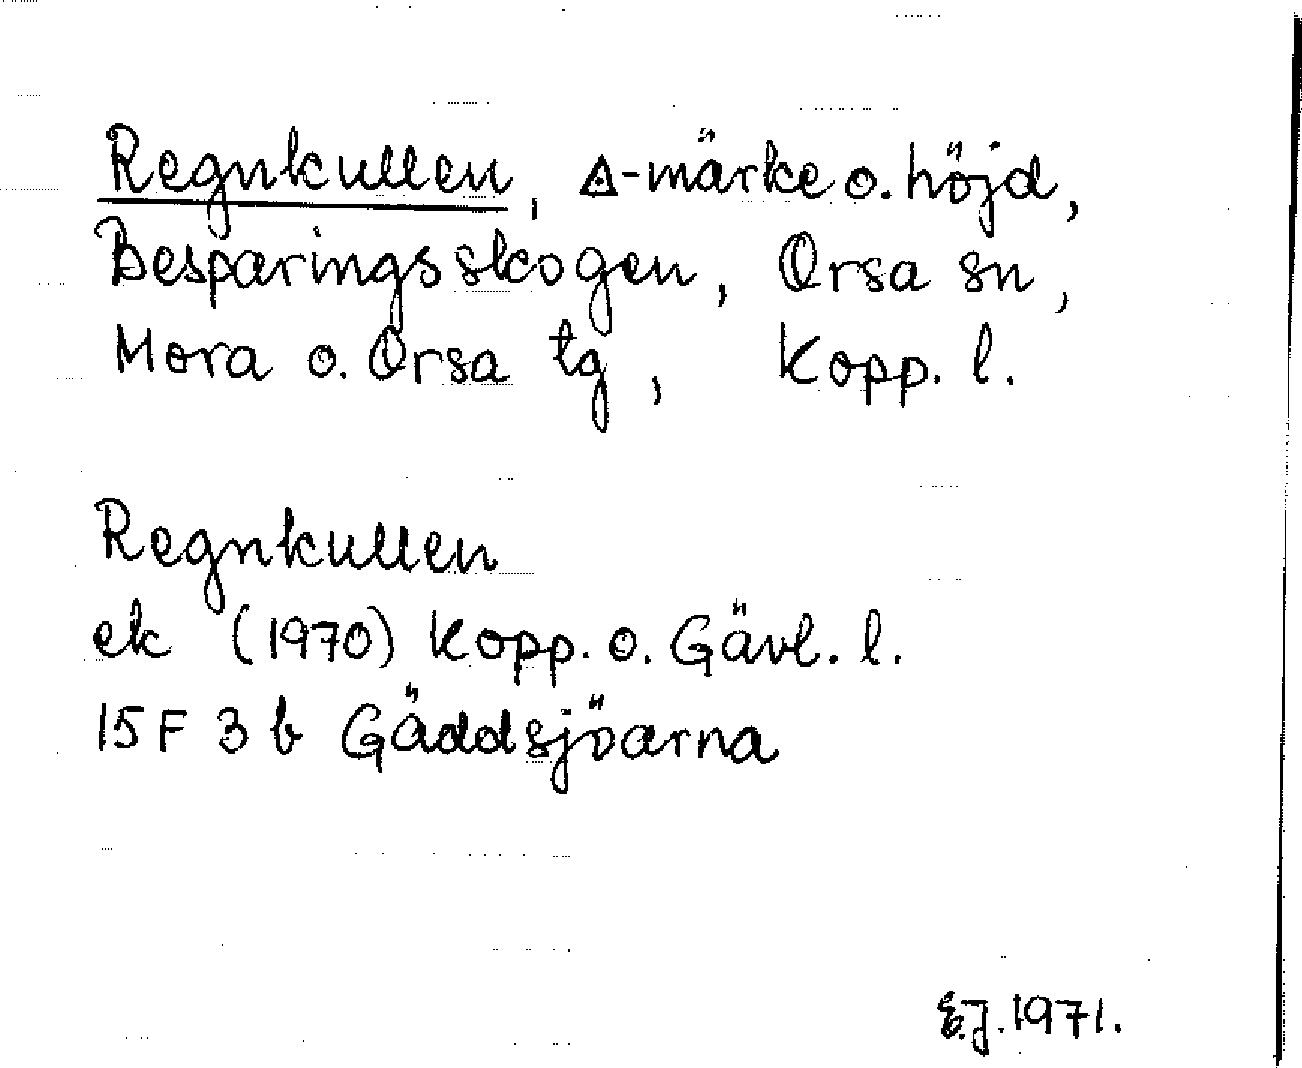 Regnkullen, ◬-märke o. höjd,
Besparingsskogen, Orsa sn,
Mora o. Orsa tg, Kopp. l.
Regnkullen
ek (1970) Kopp. o. Gävl. l.
15F 3b Gäddsjöarna
E.J. 1971.